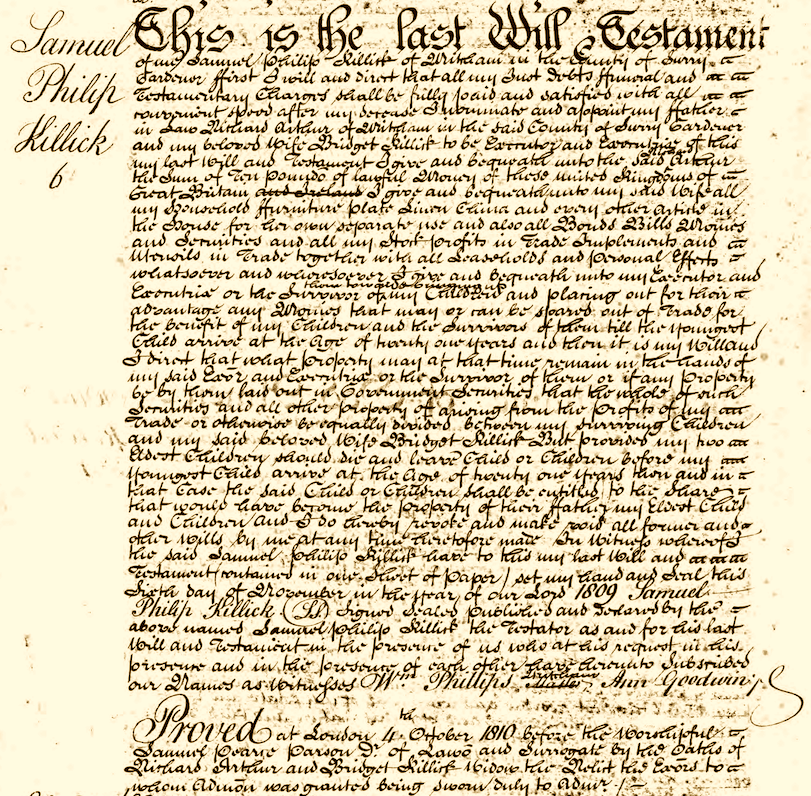 Samuel
Philip
Killick
6
This is the last Will & Testament
of me Samuel Philip Killick of Mitcham in the County of Surry
Gardener ffirst I will and direct that all my Just debts ffuneral and
Testamentary Charges shall be fully paid and satisfied with all
convenient speed after my decease I nominate and appoint my ffather
in Law Richard Arthur of Mitcham in the said County of Surry Gardener
and my beloved Wife Bridget Killick to be Executor and Executrix of this
my last Will and Testament I give and bequeath unto the said Arthur
the Sum of Ten Pounds of lawful Money of these united Kingdoms of
Great Britain and Ireland I give and bequeath unto my said Wife all
my Household ffurniture plate Linen China and every other Article in
the House for her own separate use and also all Bonds Bills Monies
and Securities and all my Stock profits in Trade Implements and
Utensils in Trade together with all Leaseholds and Personal Effects
whatsoever and wheresoever I give and bequeath unto my Executor and
Executrix or the Survivor of them towards bringing up my Children and placing out for their
advantage any Monies that may or can be spared out of Trade for
the benefit of my Children and the Survivors of them till the youngest
Child arrive at the Age of twenty one years and then it is my Will and
I direct that what Property may at that time remain in the hands of
my said Exor and Executrix or the Survivor of them or if any Property
be by them laid out in Government Securities that the whole of such
Securities and all other Property of arising from the Profits of my
Trade or otherwise be equally divided between my surviving Children
and my said beloved Wife Bridget Killick But provided my two
Eldest Children should die and leave Child or Children before my
youngest Child arrive at the Age of twenty one years then and in
that Case the said Child or Children shall be entitled to the Share
that would have become the Property of their ffather my Eldest Child
and Children and I do hereby revoke and make void all former and
other Wills by me at any time heretofore made In Witness whereof I
the said Samuel Philip Killick have to this my last Will and
Testament (contained in one Sheet of Paper) set my hand and Seal this
Sixth day of November in the year of our Lord 1809 Samuel
Philip Killick (LS) Signed Sealed Published and Declared by the
above named Samuel Philip Killick the Testator as and for his last
Will and Testament in the presence of us who at his request in his
presence and in the presence of each other have hereunto Subscribed
our Names as Witnesses Wm Phillips Ann Goodwin
Proved at London 4th October 1810 before the Worshipful
Samuel Pearce Parson Dr of Laws and Surrogate by the Oaths of
Richard Arthur and Bridget Killick Widow the Relict the Exors to
whom Admon was granted being sworn duly to Admr